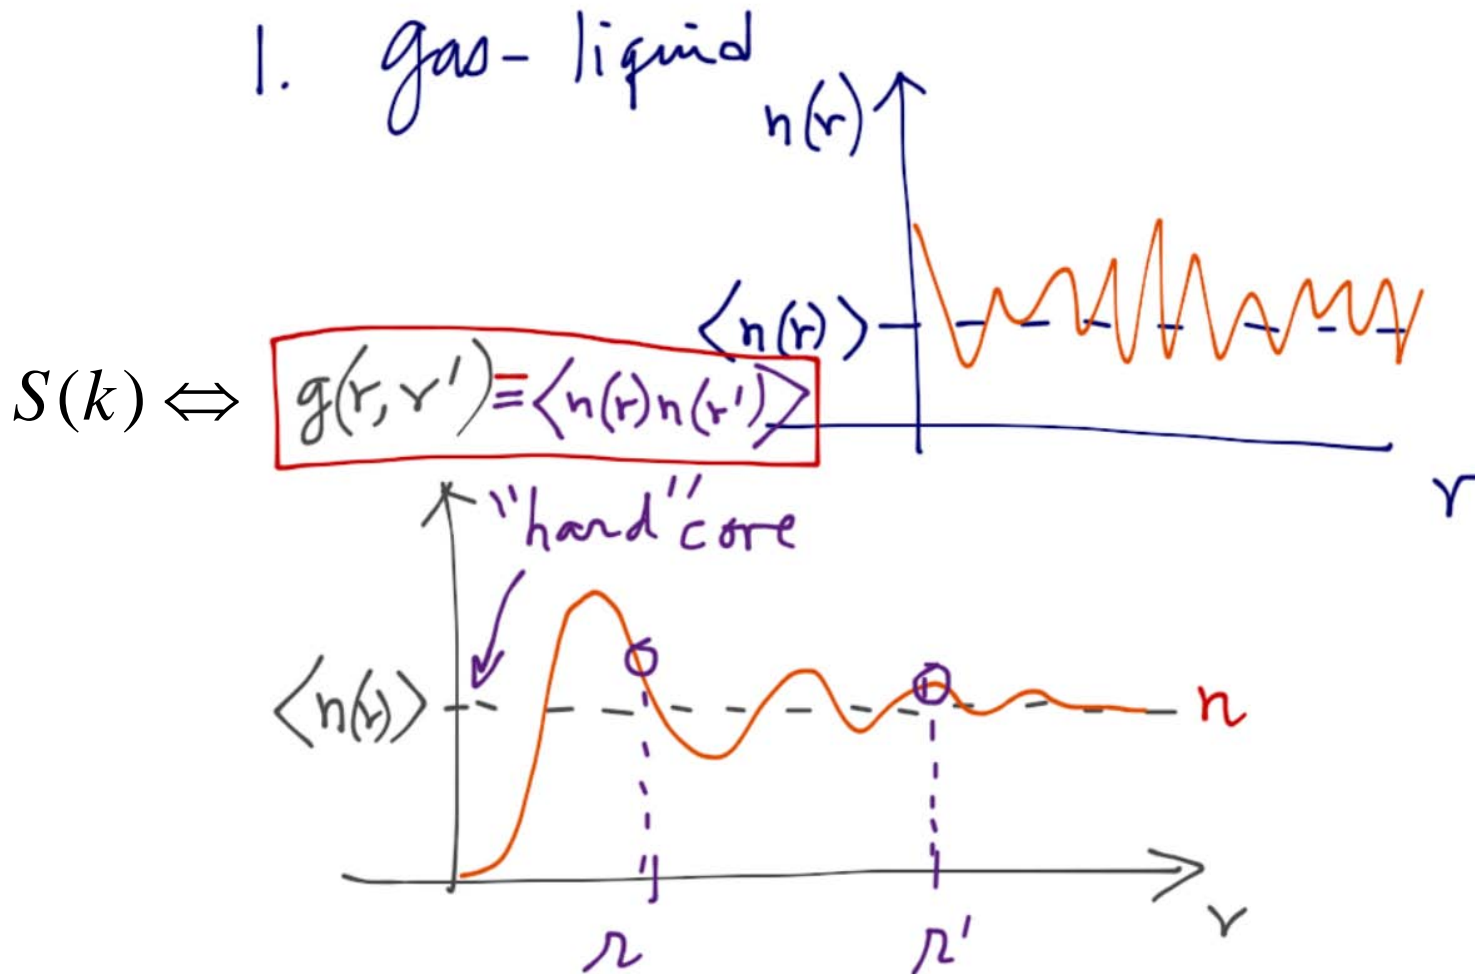 1. gas-liquid
n(r)
<n(r)>
S(k) ⇔ g(r,r') = <n(r)n(r')>
r
"hard" core
<n(r)>
n
r
r'
r